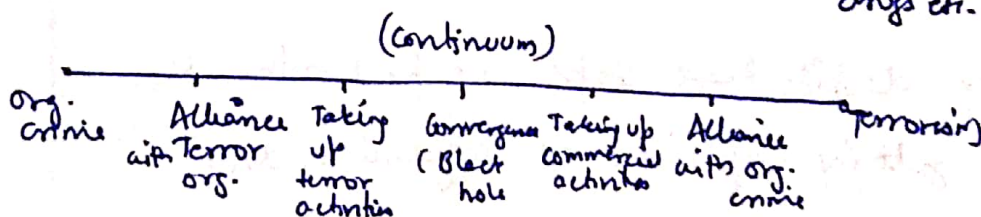 drugs etc.
(Continuum)
org. crime
Alliance with Terror org.
Taking up terror activities
Convergence (Black hole
Taking up commercial activities
Alliance with org. crime
Terrorism